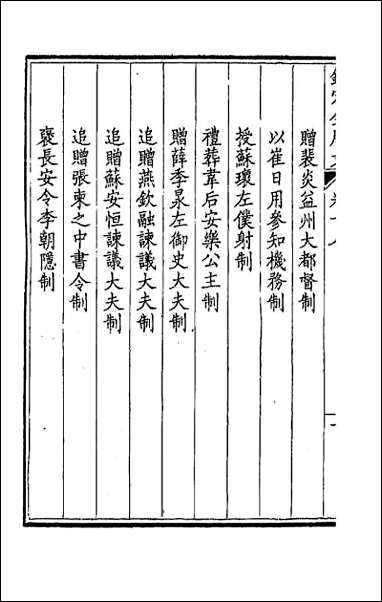 贈裴炎益州大都督制
以崔日用參知機務制
授蘇瓌左僕射制
禮葬韋后安樂公主制
贈薛季昶左御史大夫制
追贈燕欽融諫議大夫制
追贈蘇安恒諫議大夫制
追贈張柬之中書令制
褒長安令李朝隱制